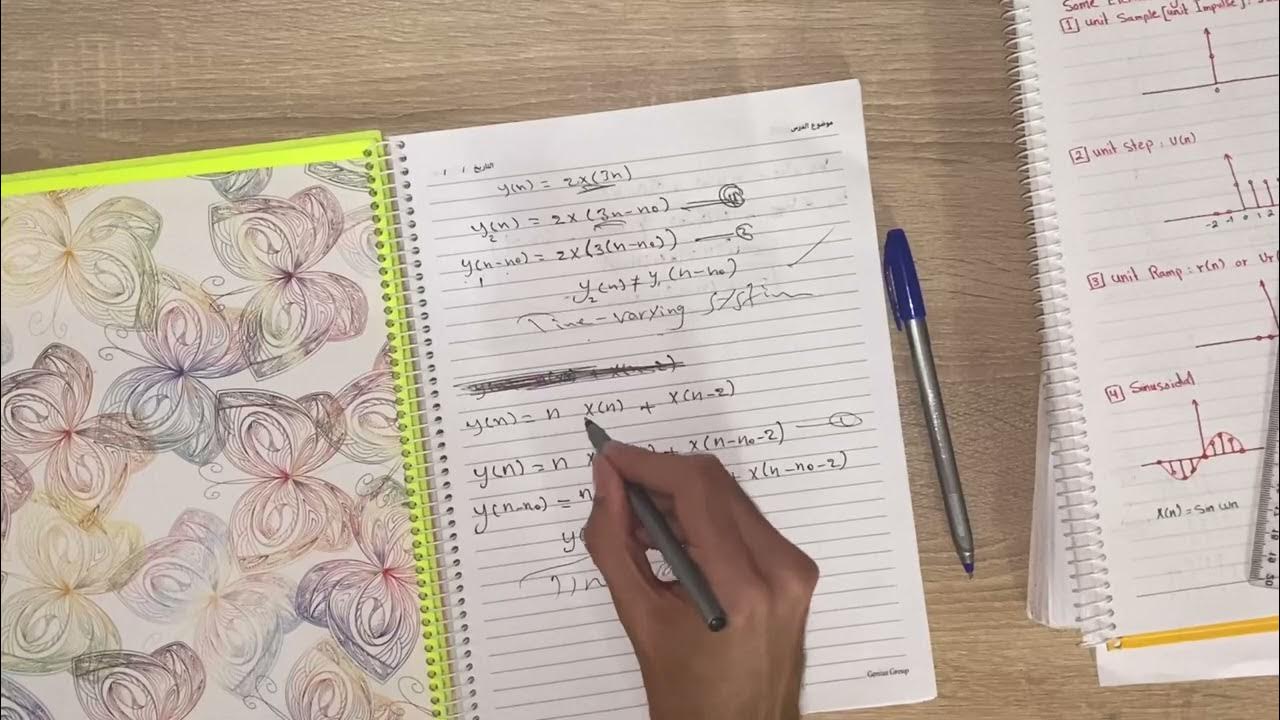 موضوع الدرس
التاريخ / /
y(n) = 2x(3n)
y₂(n) = 2x(3n-n₀)
y(n-n₀) = 2x(3(n-n₀)) — 2
y₂(n) ≠ y₁(n-n₀)
Time-varying system
y(n) = n x(n) + x(n-2)
y(n) = n + x(n-n₀-2) — 1
y(n-n₀) = + x(n-n₀-2)
Genius Group
Some
1 unit Sample [unit Impulse]:
0
2 unit step: U(n)
-2 -1 0 1 2
3 unit Ramp: r(n) or
4 Sinusoidal
x(n) = Sin wn